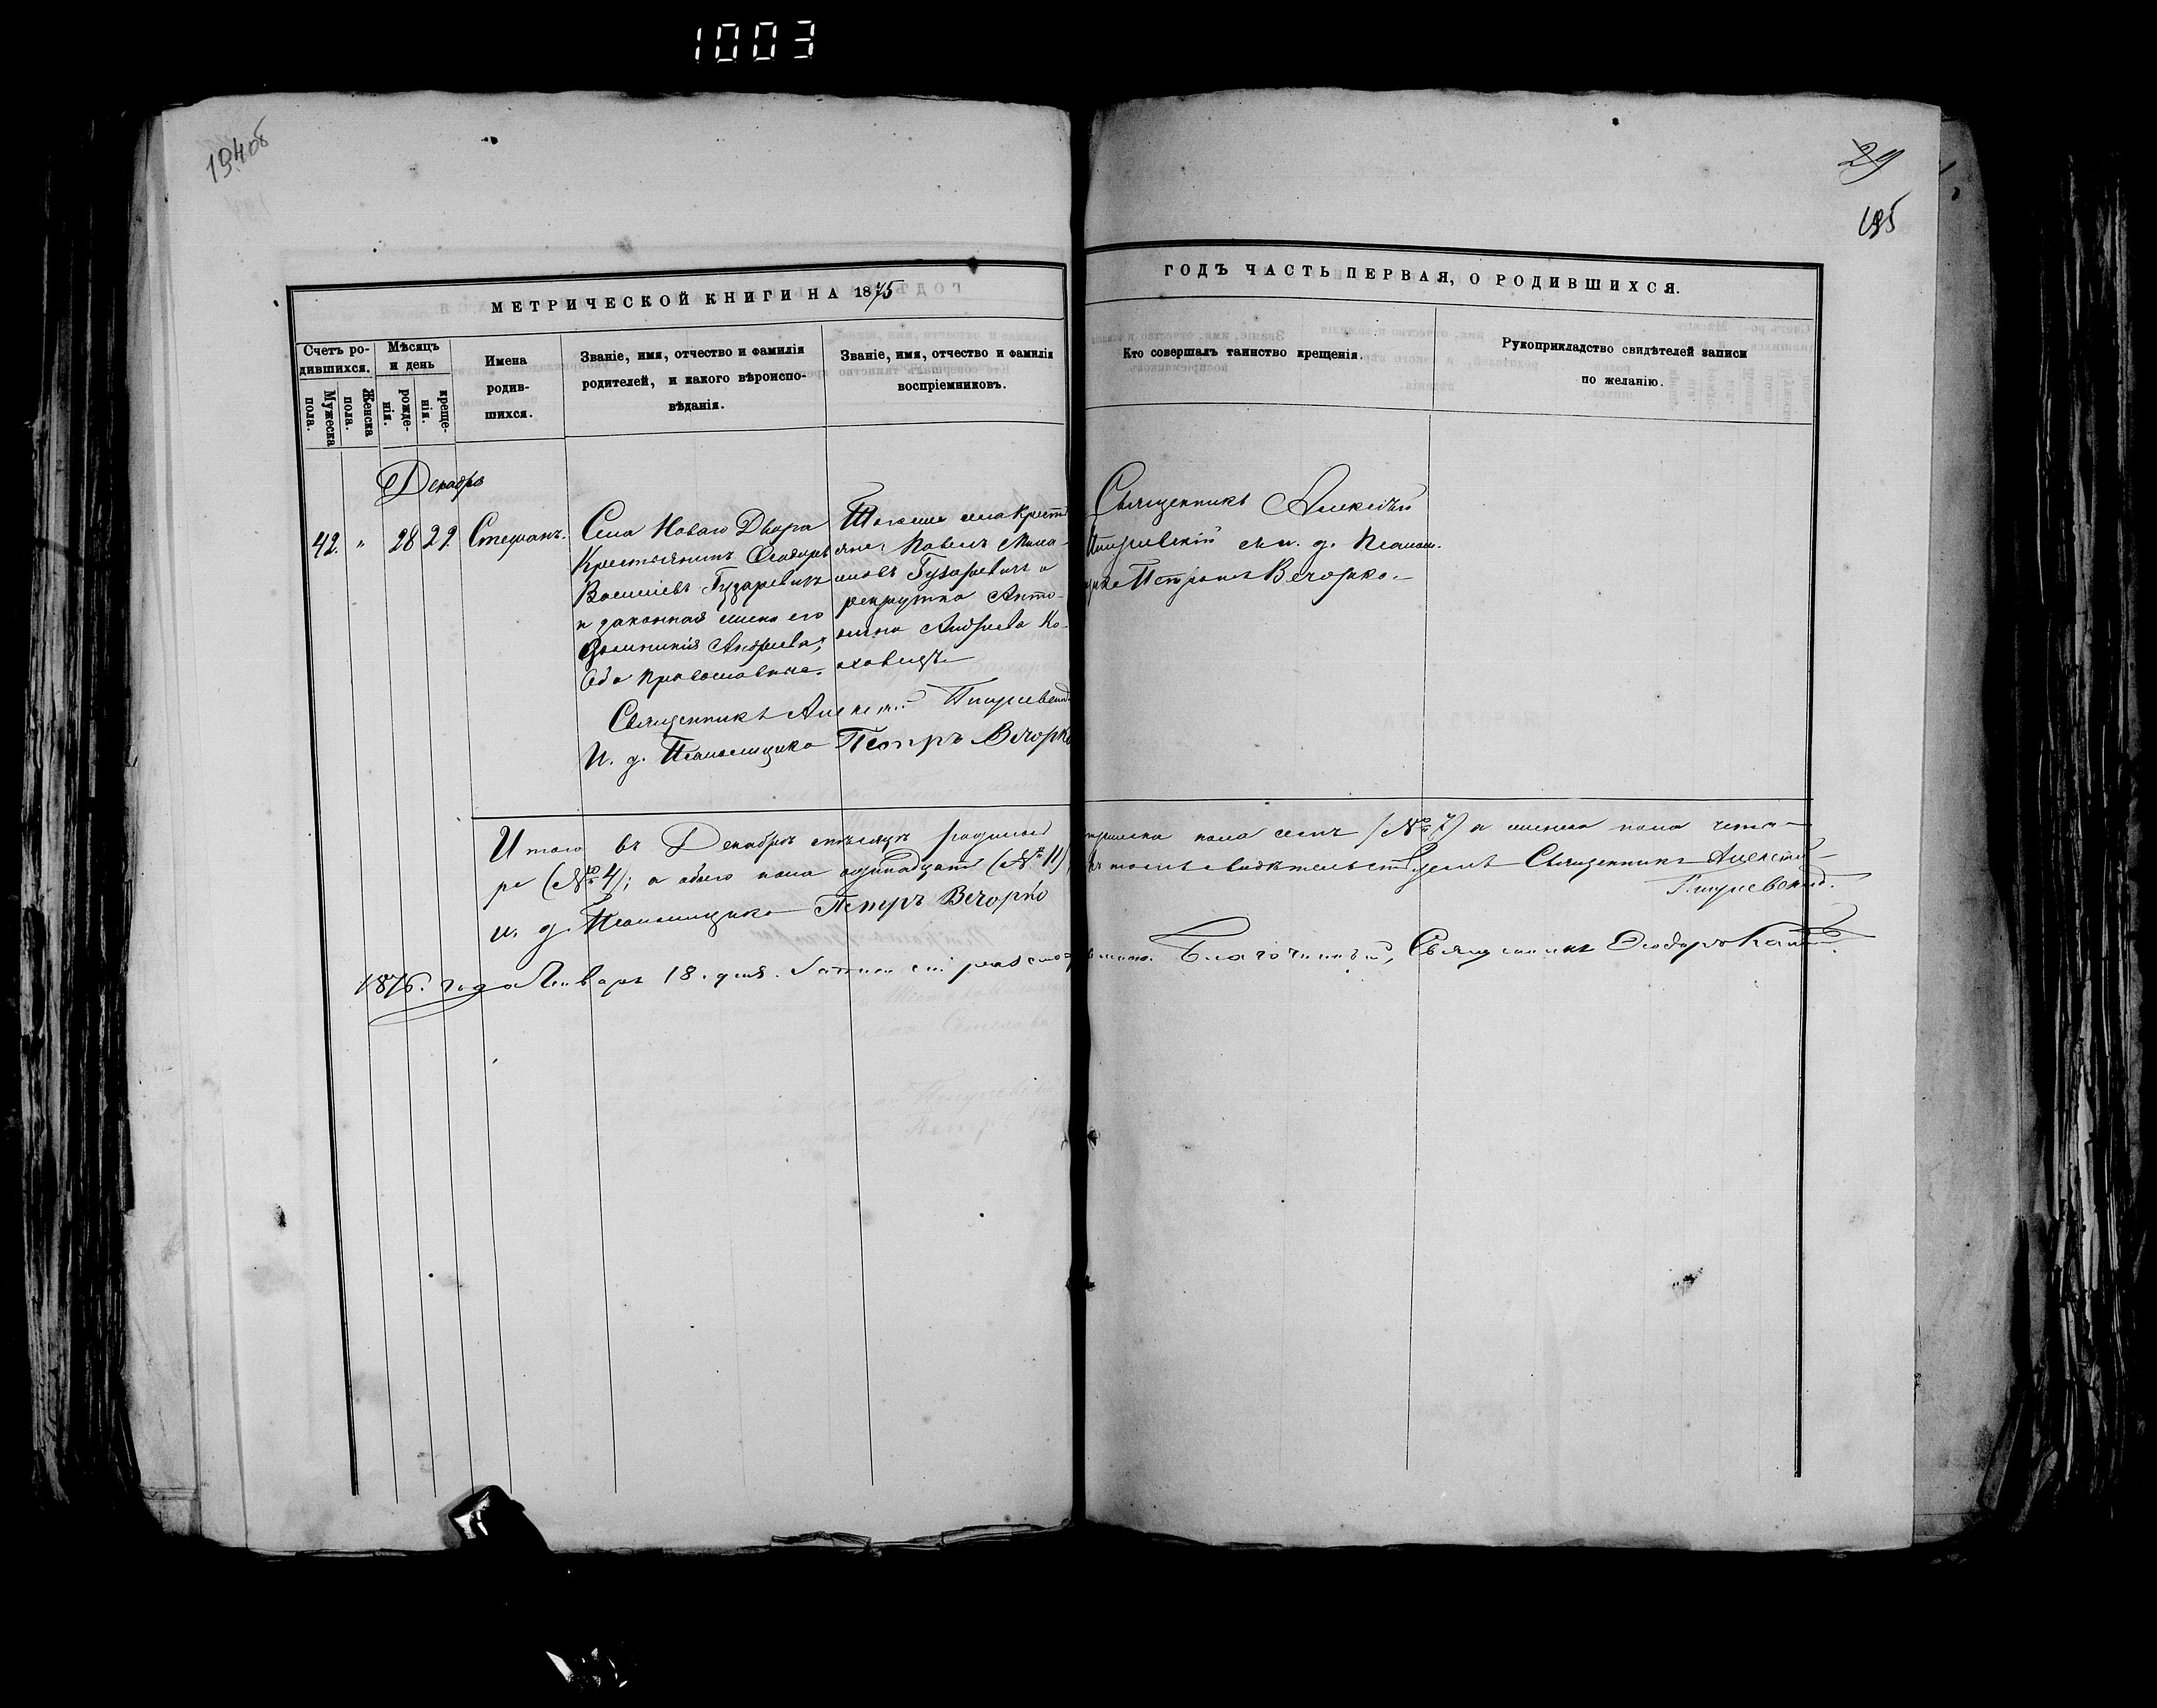 1003
194об
29
195
МЕТРИЧЕСКОЙ КНИГИ НА 1875
ГОДЪ ЧАСТЬ ПЕРВАЯ, О РОДИВШИХСЯ.
Счетъ ро-
дившихся.
Мужеска
пола.
Женска
пола.
Мѣсяцъ
и день
рожде-
нія.
креще-
нія.
Имена
родив-
шихся.
Званіе, имя, отчество и фамилія
родителей, и какого вѣроиспо-
вѣданія.
Званіе, имя, отчество и фамилія
воспріемниковъ.
Кто совершалъ таинство крещенія.
Рукоприкладство свидѣтелей записи
по желанію.
Декабрь
42. " 28 29. Стефанъ.
Села Новаго Двора
Крестьянинъ Ѳеодоръ
Васильевъ Гузаревичъ
и законная жена его
Андреева,
оба православные.
Тогоже села крестья
не: Павелъ
Гузаревичъ и
рекрутка Анто-
нина Андреева Ко-
Священникъ Алексѣй
съ и. д. Псалом-
щика Петромъ Вечорко.
Священникъ Алексѣй
И. д. Псаломщика Петръ Вечорко
Итого въ Декабрѣ мѣсяцѣ родилось мужеска пола семь (№ 7) а женска пола четы-
ре (№ 4); а обоего пола одинадцать (№ 11), въ томъ свидѣтельствуемъ Священникъ Алексѣй
и. д. Псаломщика Петръ Вечорко
1876. года Январь 18. дня. Благочинный, Священникъ Ѳеодоръ